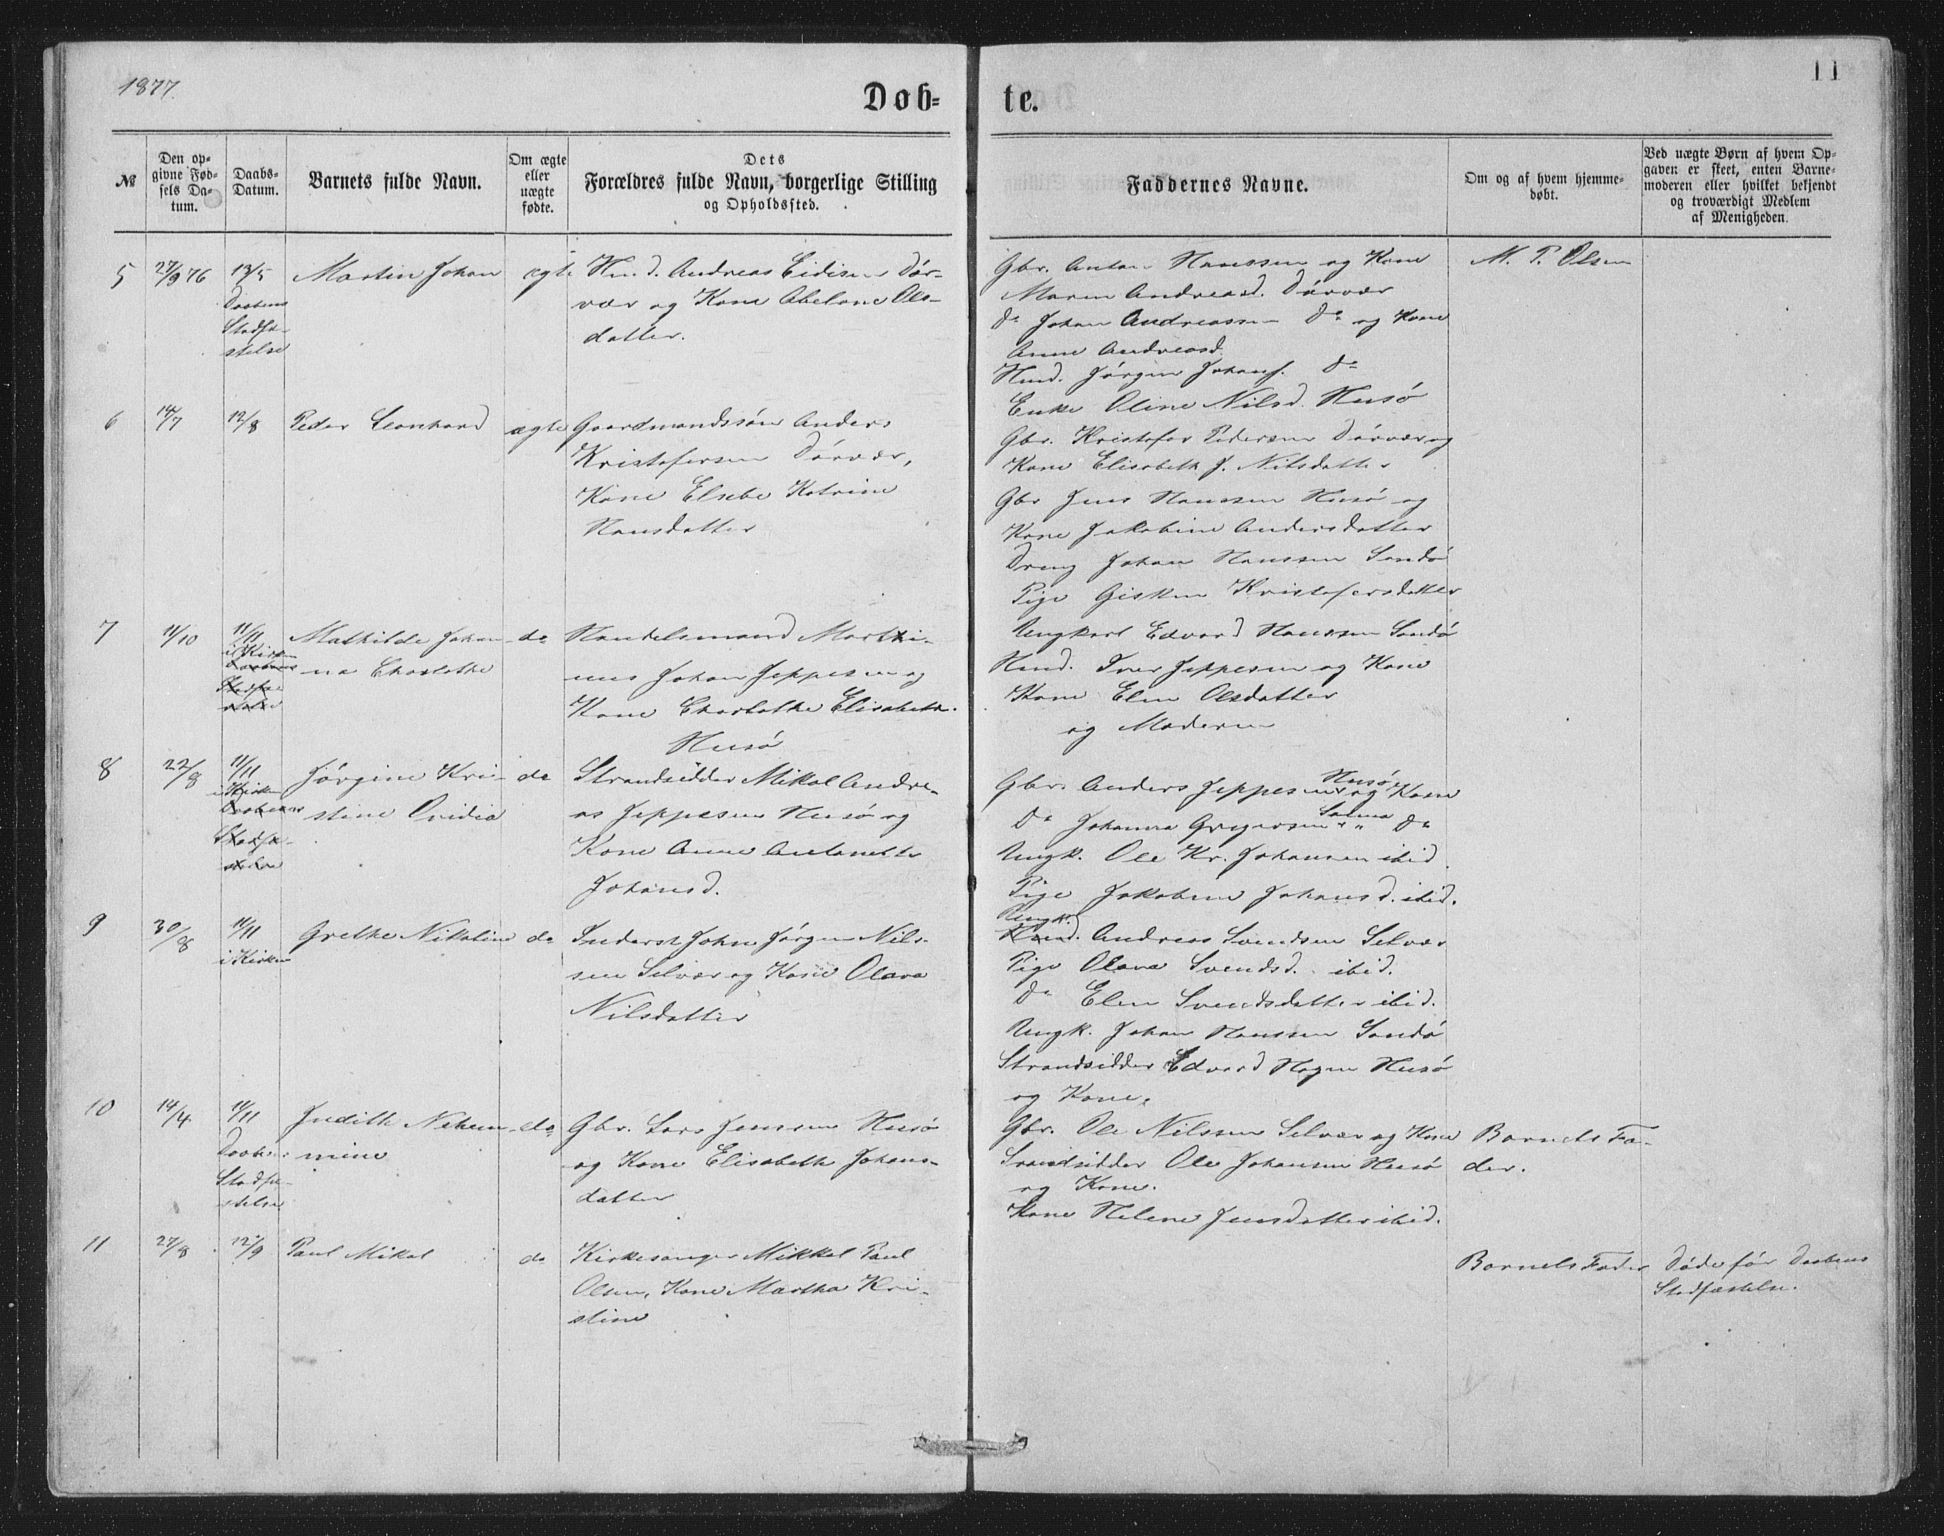 1877.
11
Døb-
te.
№
Den op-
givne Fød-
sels Da-
tum.
Daabs-
Datum.
Barnets fulde Navn.
Om ægte
eller
uægte
fødte.
Dets
Forældres fulde Navn, borgerlige Stilling
og Opholdssted.
Faddernes Navne.
Om og af hvem hjemme-
døbt.
Ved uægte Børn af hvem Op-
gaven er skeet, enten Barne-
moderen eller hvilket bekjendt
og troværdigt Medlem
af Menigheden.
5
27/9 76
13/5
Daabens
Stadfæ-
stelse
Martin Johan
ægte
Hmd. Andreas Eidisen Dør-
vær og Kone Abelone Ols-
datter.
Gbr. Anton Hanssen og Kone
Maren Andreasd. Dørvær
Do Johan Andreassen Do og Kone
Anne Andreasd.
Hmd. Jørgen Johans. Do
Enke Oline Nilsd. Husø
M. P. Olsen
6
14/7
12/8
Peder Leonhard
ægte
Gaardmandssøn Anders
Kristofersen Dørvær,
Kone Elsebe Katrine
Hansdatter
Gbr. Kristofer Pedersen Dørvær og
Kone Elisabeth J. Nilsdatter
Gbr Jens Hanssen Husø og
Kone Jakobine Andersdatter
Dreng Johan Hanssen Sandø
Pige Gisken Kristofersdatter
7
11/10
11/11
i Kirken
Daabens
Stadfæ
stelse
Mathilde Johan-
na Charlothe
do
Handelsmand Marthi-
nus Johan Jeppesen og
Kone Charlothe Elisabeth.
Husø
Ungkarl Edvard Hanssen Sandø
Hmd. Iver Jeppesen og Kone
Kone Elen Olsdatter
og Moderen
8
22/8
11/11
i Kirken
Daabens
Stadfæ-
stelse
Jørgine Kri-
stine Ovidia
do
Strandsidder Mikal Andre-
as Jeppesen Husø og
Kone Anne Antonette
Johansd.
Gbr. Anders Jeppesen Husø og Kone
Do Johanna Gregersen Do
Ungk. Ole Kr. Johansen ibid
Pige Jakobine Johansd. ibid.
9
30/8
11/11
i Kirken
Grethe Nikoline
do
Inderst John Jørgen Nils-
sen Selvær og Kone Olava
Nilsdatter
Ungk.
Hmd. Andreas Svendsen Selvær
Pige Olava Svendsd. ibid.
Do Elen Svendsdatter ibid.
Ungk. Johan Hanssen Sandø
Strandsidder Edvard Hagen Husø
og Kone.
10
14/4
11/11
Daabens
Stadfæ-
stelse
Judith Nekem-
mine
do
Gbr. Lars Jenssen Husø
og Kone Elisabeth Johans-
datter
Gbr. Ole Nilssen Selvær og Kone
Srandsidder Ole Johansen Husø
og Kone.
Kone Helene Jensdatter ibid.
Barnets Fa-
der.
11
27/8
12/9
Paul Mikal
do
Kirkesanger Mikkel Paul
Olsen, Kone Martha Kri-
stine
Barnets Fader
Døde før Daabens
Stadfæstelse.